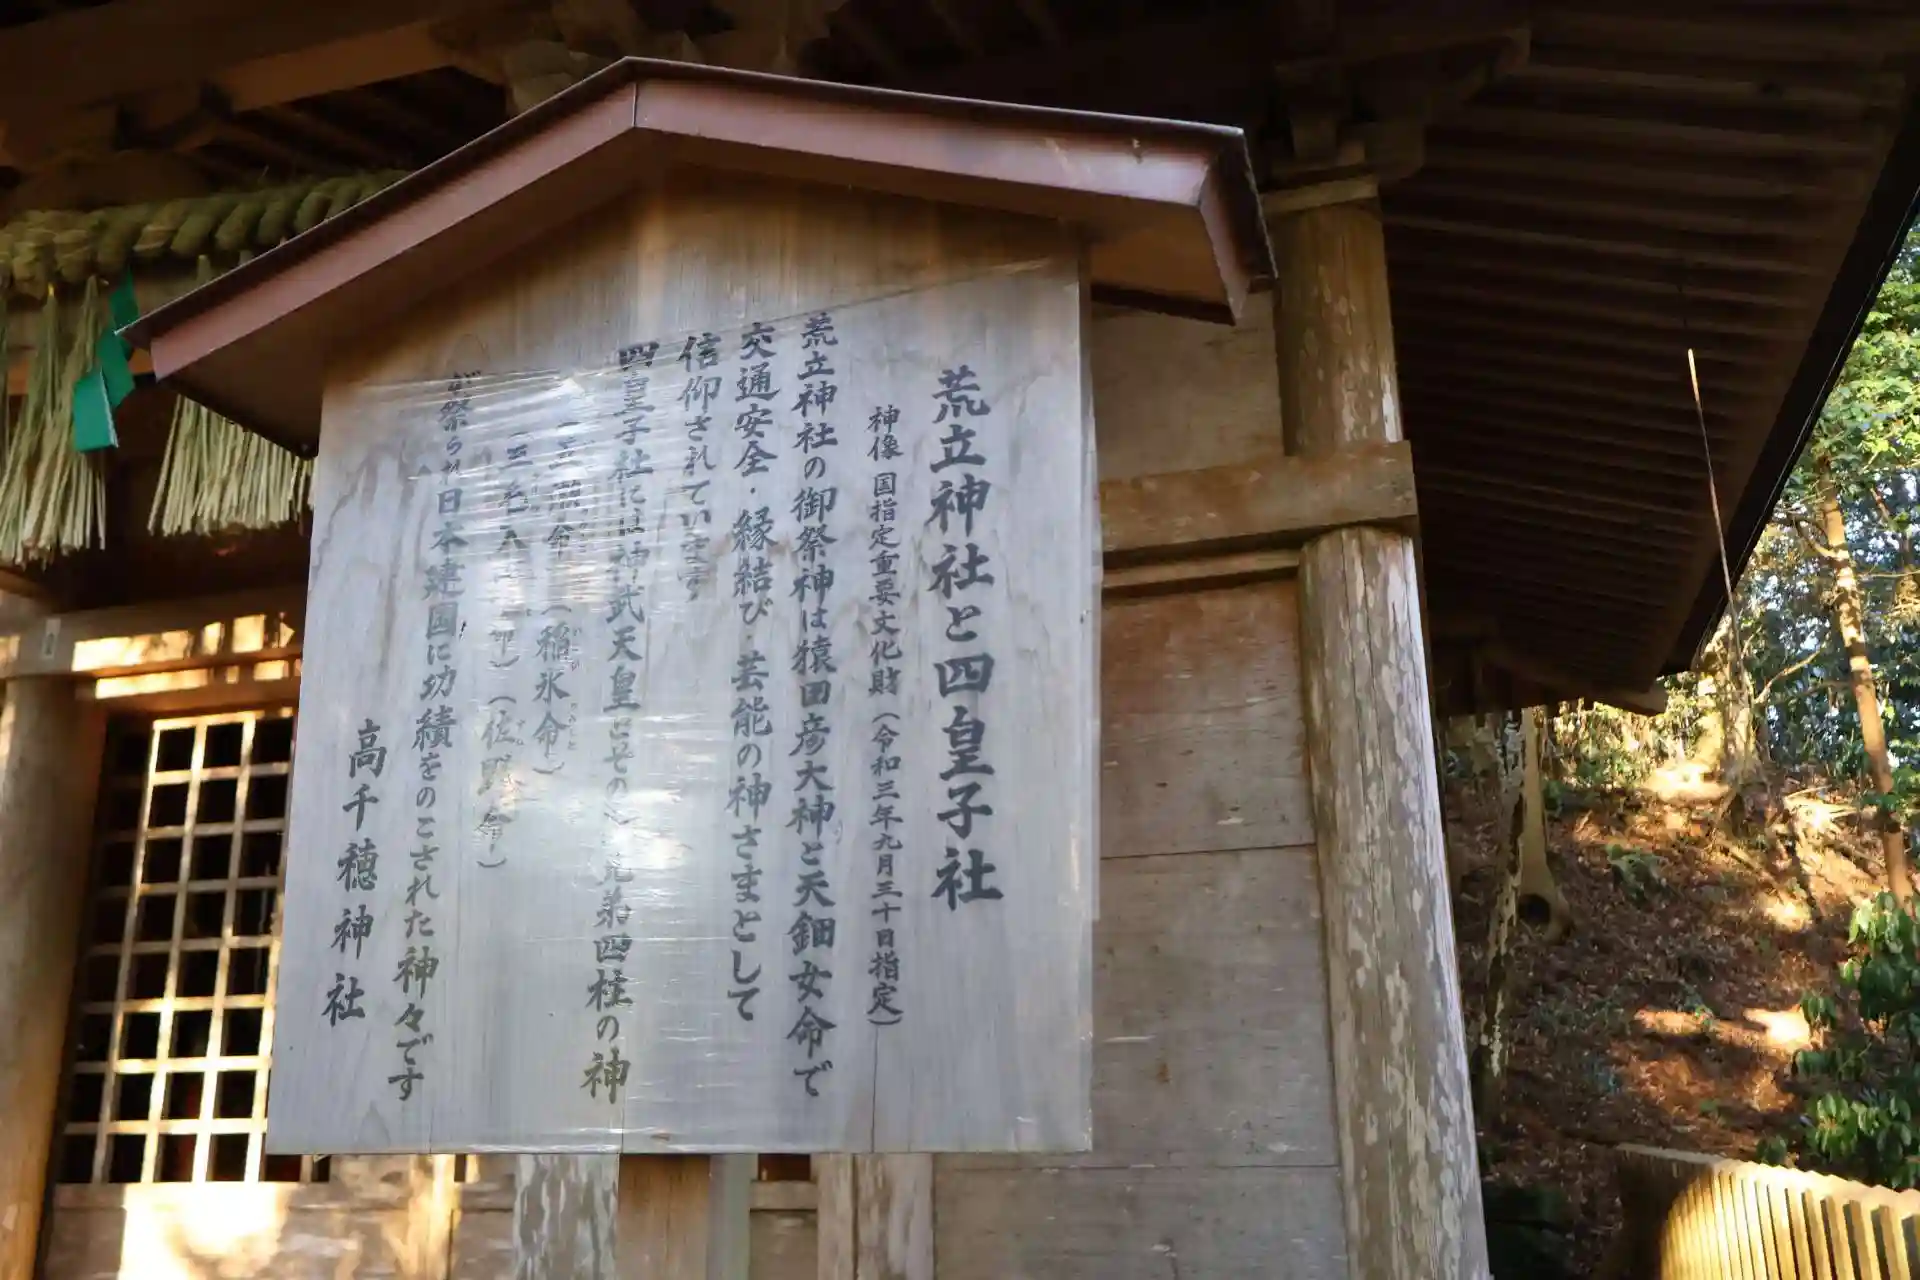 荒立神社と四皇子社
神像 国指定重要文化財(令和三年九月三十日指定)
荒立神社の御祭神は猿田彦大神と天鈿女命で
交通安全・縁結び・芸能の神さまとして
信仰されています
四皇子社には神武天皇とその 兄弟四柱の神
命(稲氷命)
(三毛入 命)(佐野命)
が祭られ日本建国に功績をのこされた神々です
高千穂神社